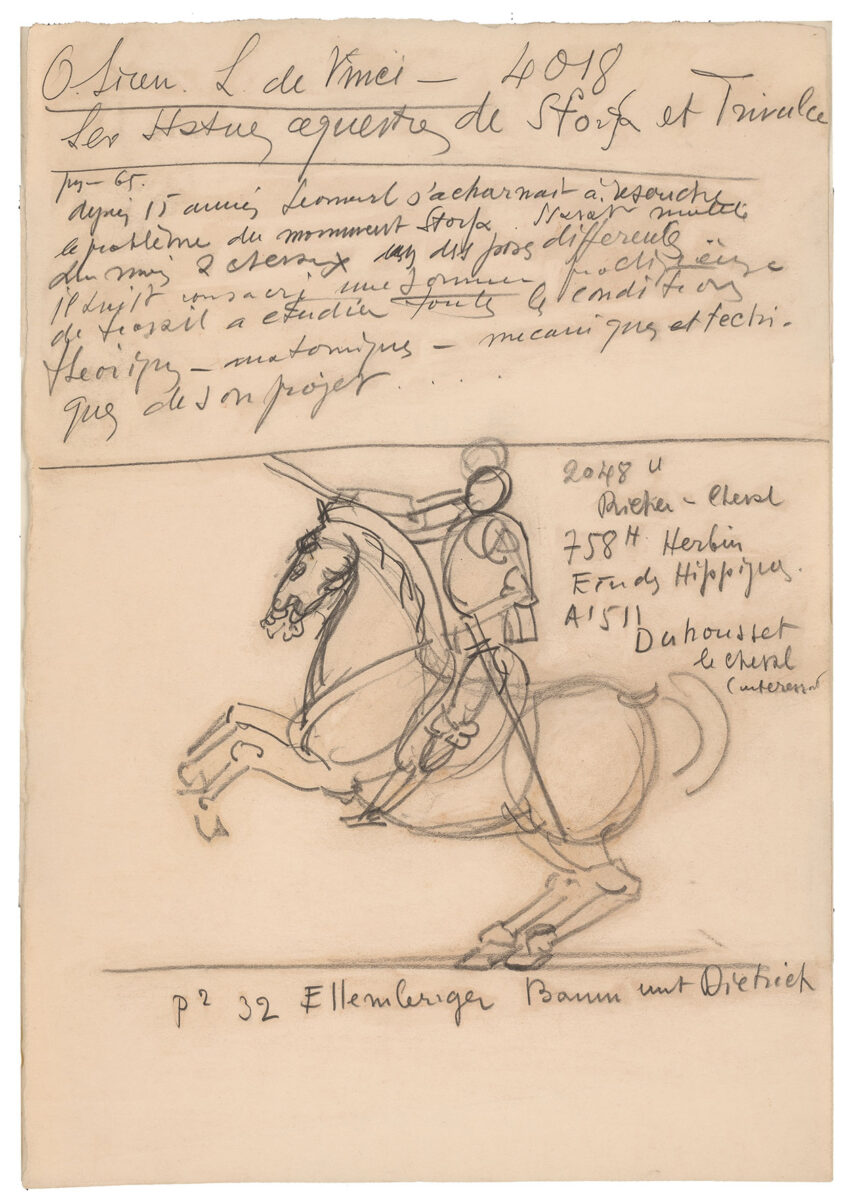 O. Siren. L. de Vinci – 4018
Les Statues equestres de Sforza et Trivulce
pag – 65.
depuis 15 années Leonard s'acharnait à résoudre
le problème du monument Sforza.
du moins 2 chevaux dans des poses différente
il avait consacré une somme prodigieuse
de travail a etudier toutes les conditions
theoriques – anatomiques – mecaniques et techni-
ques de son projet . . . .
2048 u
Richer – Cheval
758 H Herbin
Etudes Hippiques.
A1511
Duhousset
le cheval
(interessant
p2 32 Ellemberiger Baum unt Dietrich